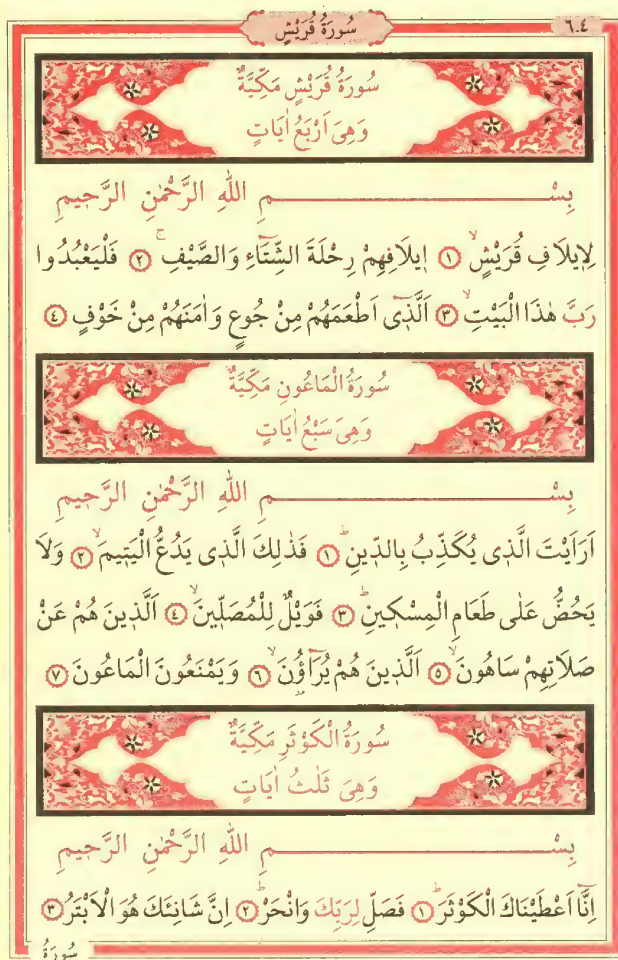 سُورَةُ قُرَيْشٍ ٦٠٤
سُورَةُ قُرَيْشٍ مَكِّيَّةٌ
وَهِىَ اَرْبَعُ اٰيَاتٍ
بِسْمِ اللّٰهِ الرَّحْمٰنِ الرَّحِيمِ
لِاِيلَافِ قُرَيْشٍۙ ﴿١﴾ اِيلَافِهِمْ رِحْلَةَ الشِّتَٓاءِ وَالصَّيْفِۚ ﴿٢﴾ فَلْيَعْبُدُوا
رَبَّ هٰذَا الْبَيْتِۙ ﴿٣﴾ اَلَّذ۪ٓى اَطْعَمَهُمْ مِنْ جُوعٍ وَاٰمَنَهُمْ مِنْ خَوْفٍ ﴿٤﴾
سُورَةُ الْمَاعُونِ مَكِّيَّةٌ
وَهِىَ سَبْعُ اٰيَاتٍ
بِسْمِ اللّٰهِ الرَّحْمٰنِ الرَّحِيمِ
اَرَاَيْتَ الَّذ۪ى يُكَذِّبُ بِالدّ۪ينِۜ ﴿١﴾ فَذٰلِكَ الَّذ۪ى يَدُعُّ الْيَت۪يمَۙ ﴿٢﴾ وَلَا
يَحُضُّ عَلٰى طَعَامِ الْمِسْك۪ينِۜ ﴿٣﴾ فَوَيْلٌ لِلْمُصَلّ۪ينَۙ ﴿٤﴾ اَلَّذ۪ينَ هُمْ عَنْ
صَلَاتِهِمْ سَاهُونَۙ ﴿٥﴾ اَلَّذ۪ينَ هُمْ يُرَٓاؤُ۫نَۙ ﴿٦﴾ وَيَمْنَعُونَ الْمَاعُونَ ﴿٧﴾
سُورَةُ الْكَوْثَرِ مَكِّيَّةٌ
وَهِىَ ثَلٰثُ اٰيَاتٍ
بِسْمِ اللّٰهِ الرَّحْمٰنِ الرَّحِيمِ
اِنَّٓا اَعْطَيْنَاكَ الْكَوْثَرَۜ ﴿١﴾ فَصَلِّ لِرَبِّكَ وَانْحَرْۜ ﴿٢﴾ اِنَّ شَانِئَكَ هُوَ الْاَبْتَرُ ﴿٣﴾
سُورَةُ